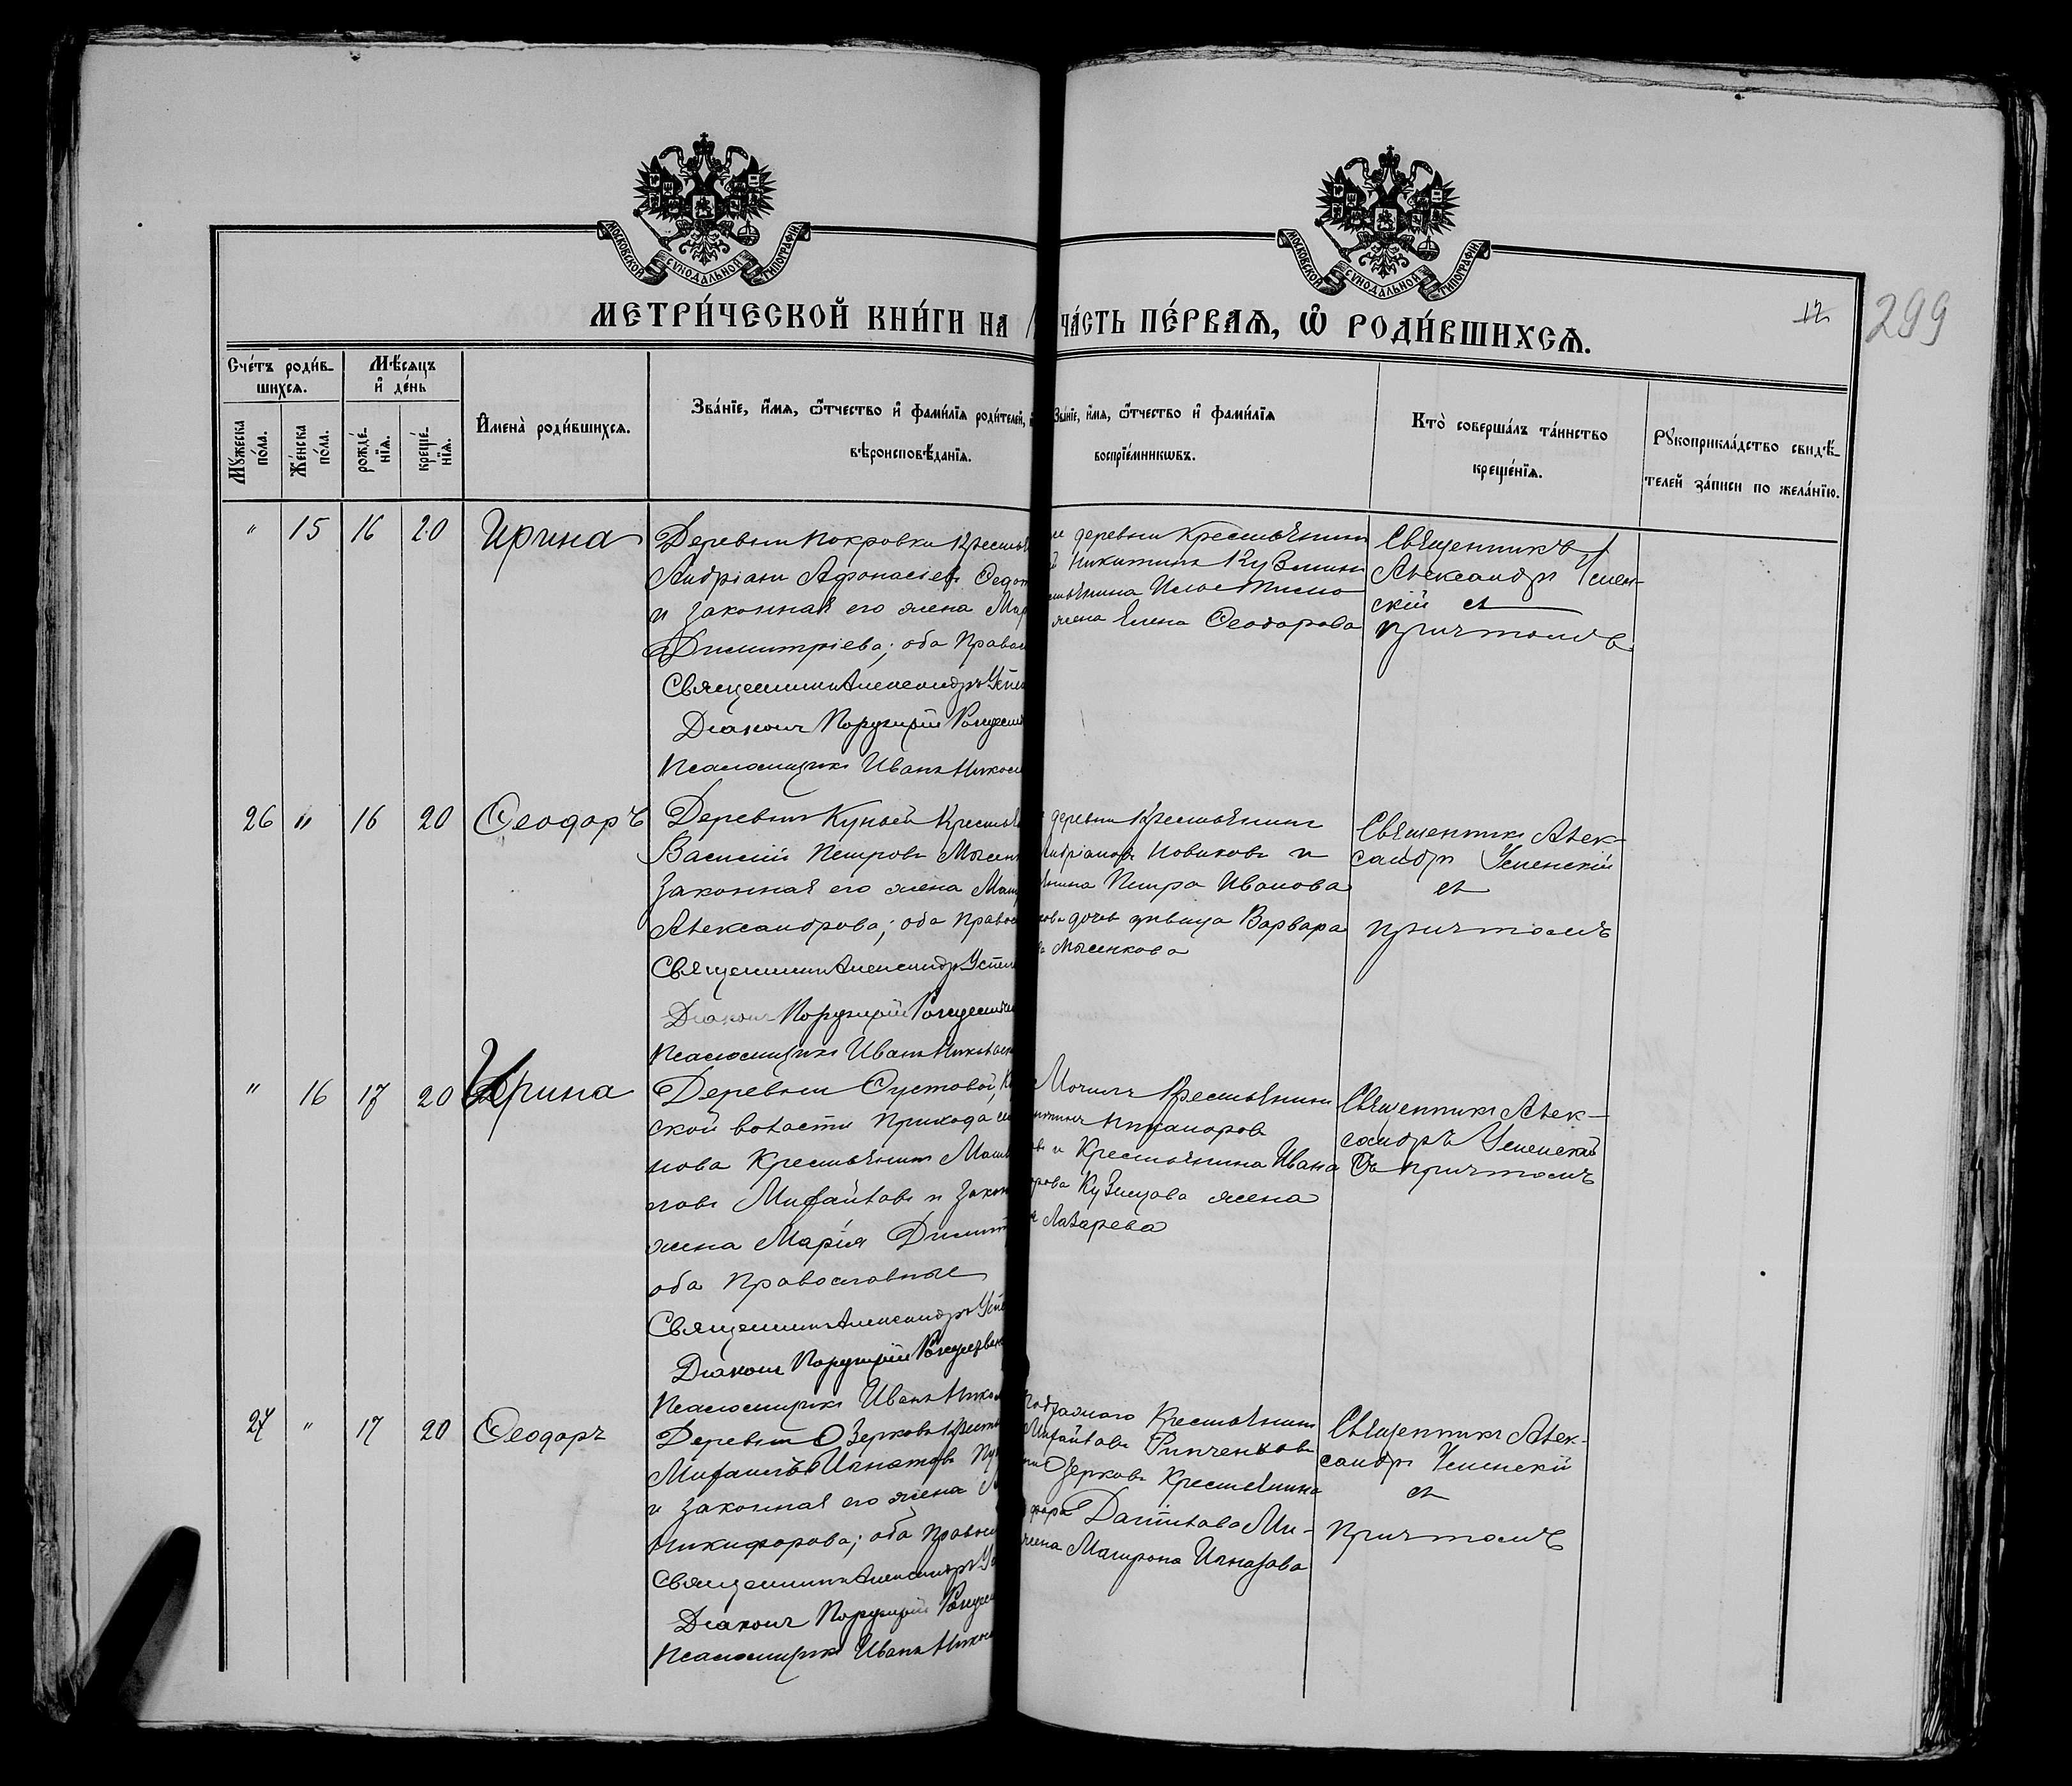 МОСКОВСКОЙ СУНОДАЛЬНОЙ ТИПОГРАФІИ
МОСКОВСКОЙ СУНОДАЛЬНОЙ ТИПОГРАФІИ
МЕТРИ́ЧЕСКОЙ КНИ́ГИ НА
ЧА́СТЬ ПЕ́РВАѦ, Ѽ РОДИ́ВШИХСѦ.
12
299
Сче́тъ роди́в-
шихсѧ.
Мѣ́сѧцъ
и҆ де́нь
Мꙋ́жеска
по́ла.
Же́нска
по́ла.
рожде́-
нїѧ.
креще́-
нїѧ.
И҆мена̀ роди́вшихсѧ.
Зва́нїе, и҆́мѧ, ѻ҆́тчество и҆ фами́лїѧ роди́телей,
вѣроисповѣ́данїѧ.
Зва́нїе, и҆́мѧ, ѻ҆́тчество и҆ фами́лїѧ
воспрїе́мникѡвъ.
Кто̀ соверша́лъ та́инство
креще́нїѧ.
Рꙋкоприкла́дство свидѣ́-
телей за́писи по жела́нїю.
" 15 16 20 Ирина
Деревни Покровки Крестья
Андріанъ Афонасіевъ Федот
и законная его жена Мар
Димитріева; оба Правос
Священникъ Александръ Успен
Діаконъ Порфирій Рождест
Псаломщикъ Иванъ Никол
деревни Крестьянинъ
Никитинъ Кузьмин
стьянина
жена Елена Ѳеодорова
Священникъ
Александръ Успен-
скій съ
причтомъ
26 " 16 20 Ѳеодоръ
Деревни Куньей Крестья
Василій Петровъ Мысенк
законная его жена Мат
Александрова; оба Правос
Священникъ Александръ Успен
Діаконъ Порфирій Рождествен
Псаломщикъ Иванъ Никольск
деревни Крестьянинъ
Андріановъ Новиковъ и
янина Петра Иванова
кова дочь дѣвица Варвара
Мысенкова
Священникъ Алек-
сандръ Успенскій
съ
причтомъ
" 16 17 20 Ирина
Деревни Сустовой,
ской волости Прихода се
нова Крестьянинъ
ловъ Михайловъ и закон
жена Марія Димит
оба Православные
Священникъ Александръ Успе
Діаконъ Порфирій Рождествен
Псаломщикъ Иванъ Никол
Крестьянинъ
Никаноров
въ и Крестьянина Ивана
орова Кузнецова жена
Лазарева
Священникъ Алек-
сандръ Успенскій
Съ причтомъ
27 " 17 20 Ѳеодоръ
Деревни Озерковъ Крестья
Михаилъ Игнатовъ
и законная его жена
Никифорова; оба Правос
Священникъ Александръ Ус
Діаконъ Порфирій Рождес
Псаломщикъ Иванъ Никол
Крестьянинъ
Михайловъ
Озерковъ Крестьянина
Даніилова Ми-
жена Матрона Игнатова
Священникъ Алек-
сандръ Успенскій
съ
причтомъ